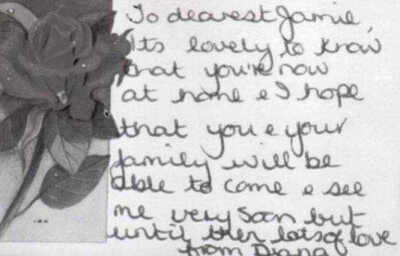 To dearest Jamie,
Its lovely to know
that you're now
at home & I hope
that you & your
family will be
able to come & see
me very soon but
until then lots of love
from Diana